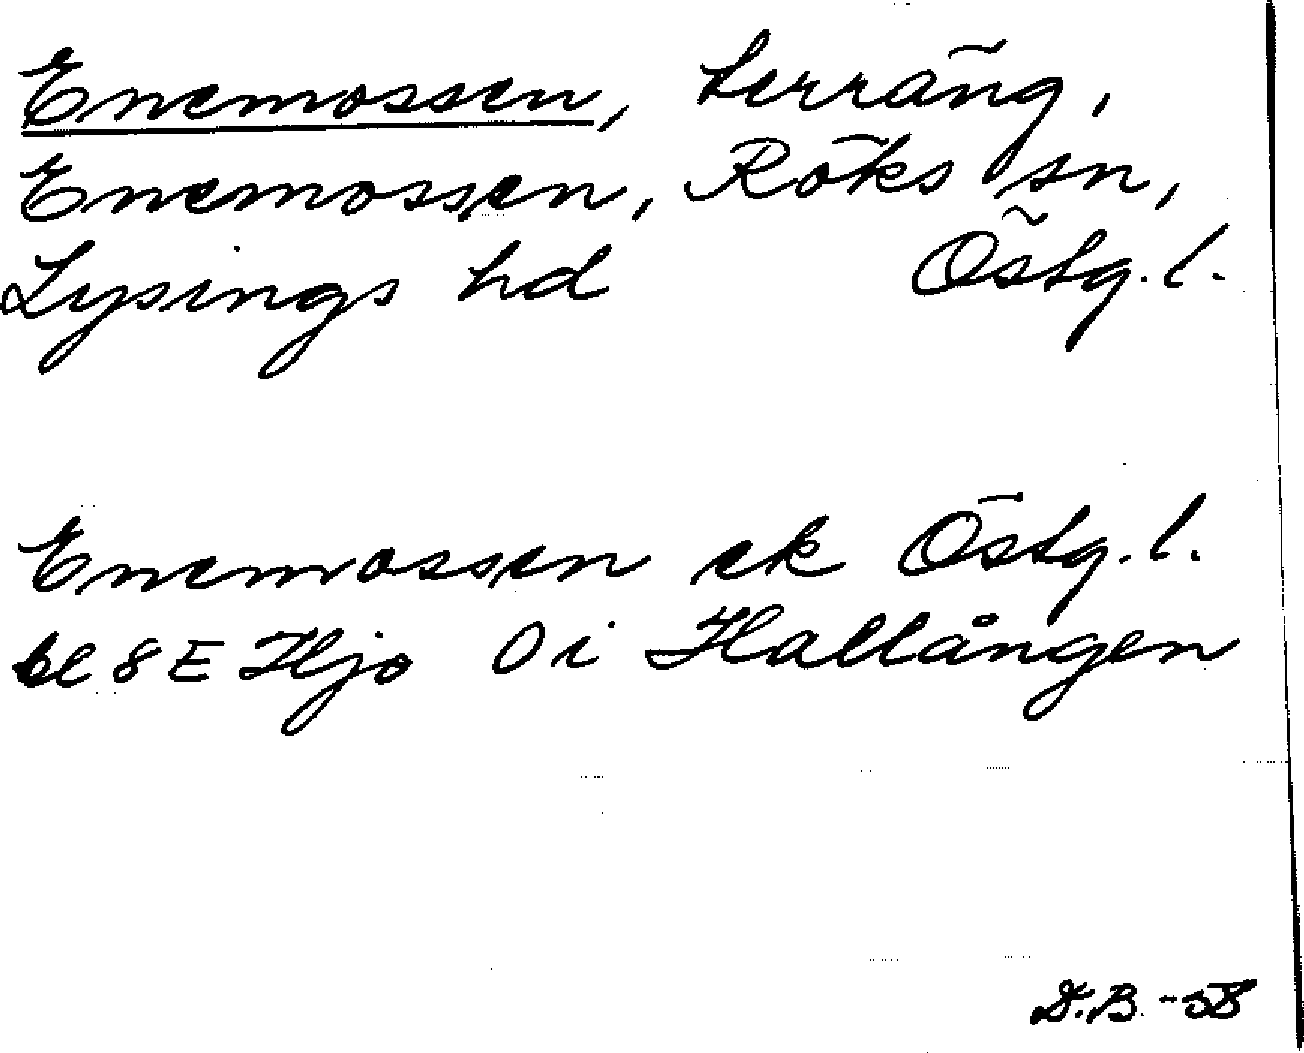 Enemossen, terräng,
Enemossen, Röks sn,
Lysings hd Östg. l.
Enemossen ek Östg. l.
bl 8 E Hjo 0 i Hallången
D.B. -58